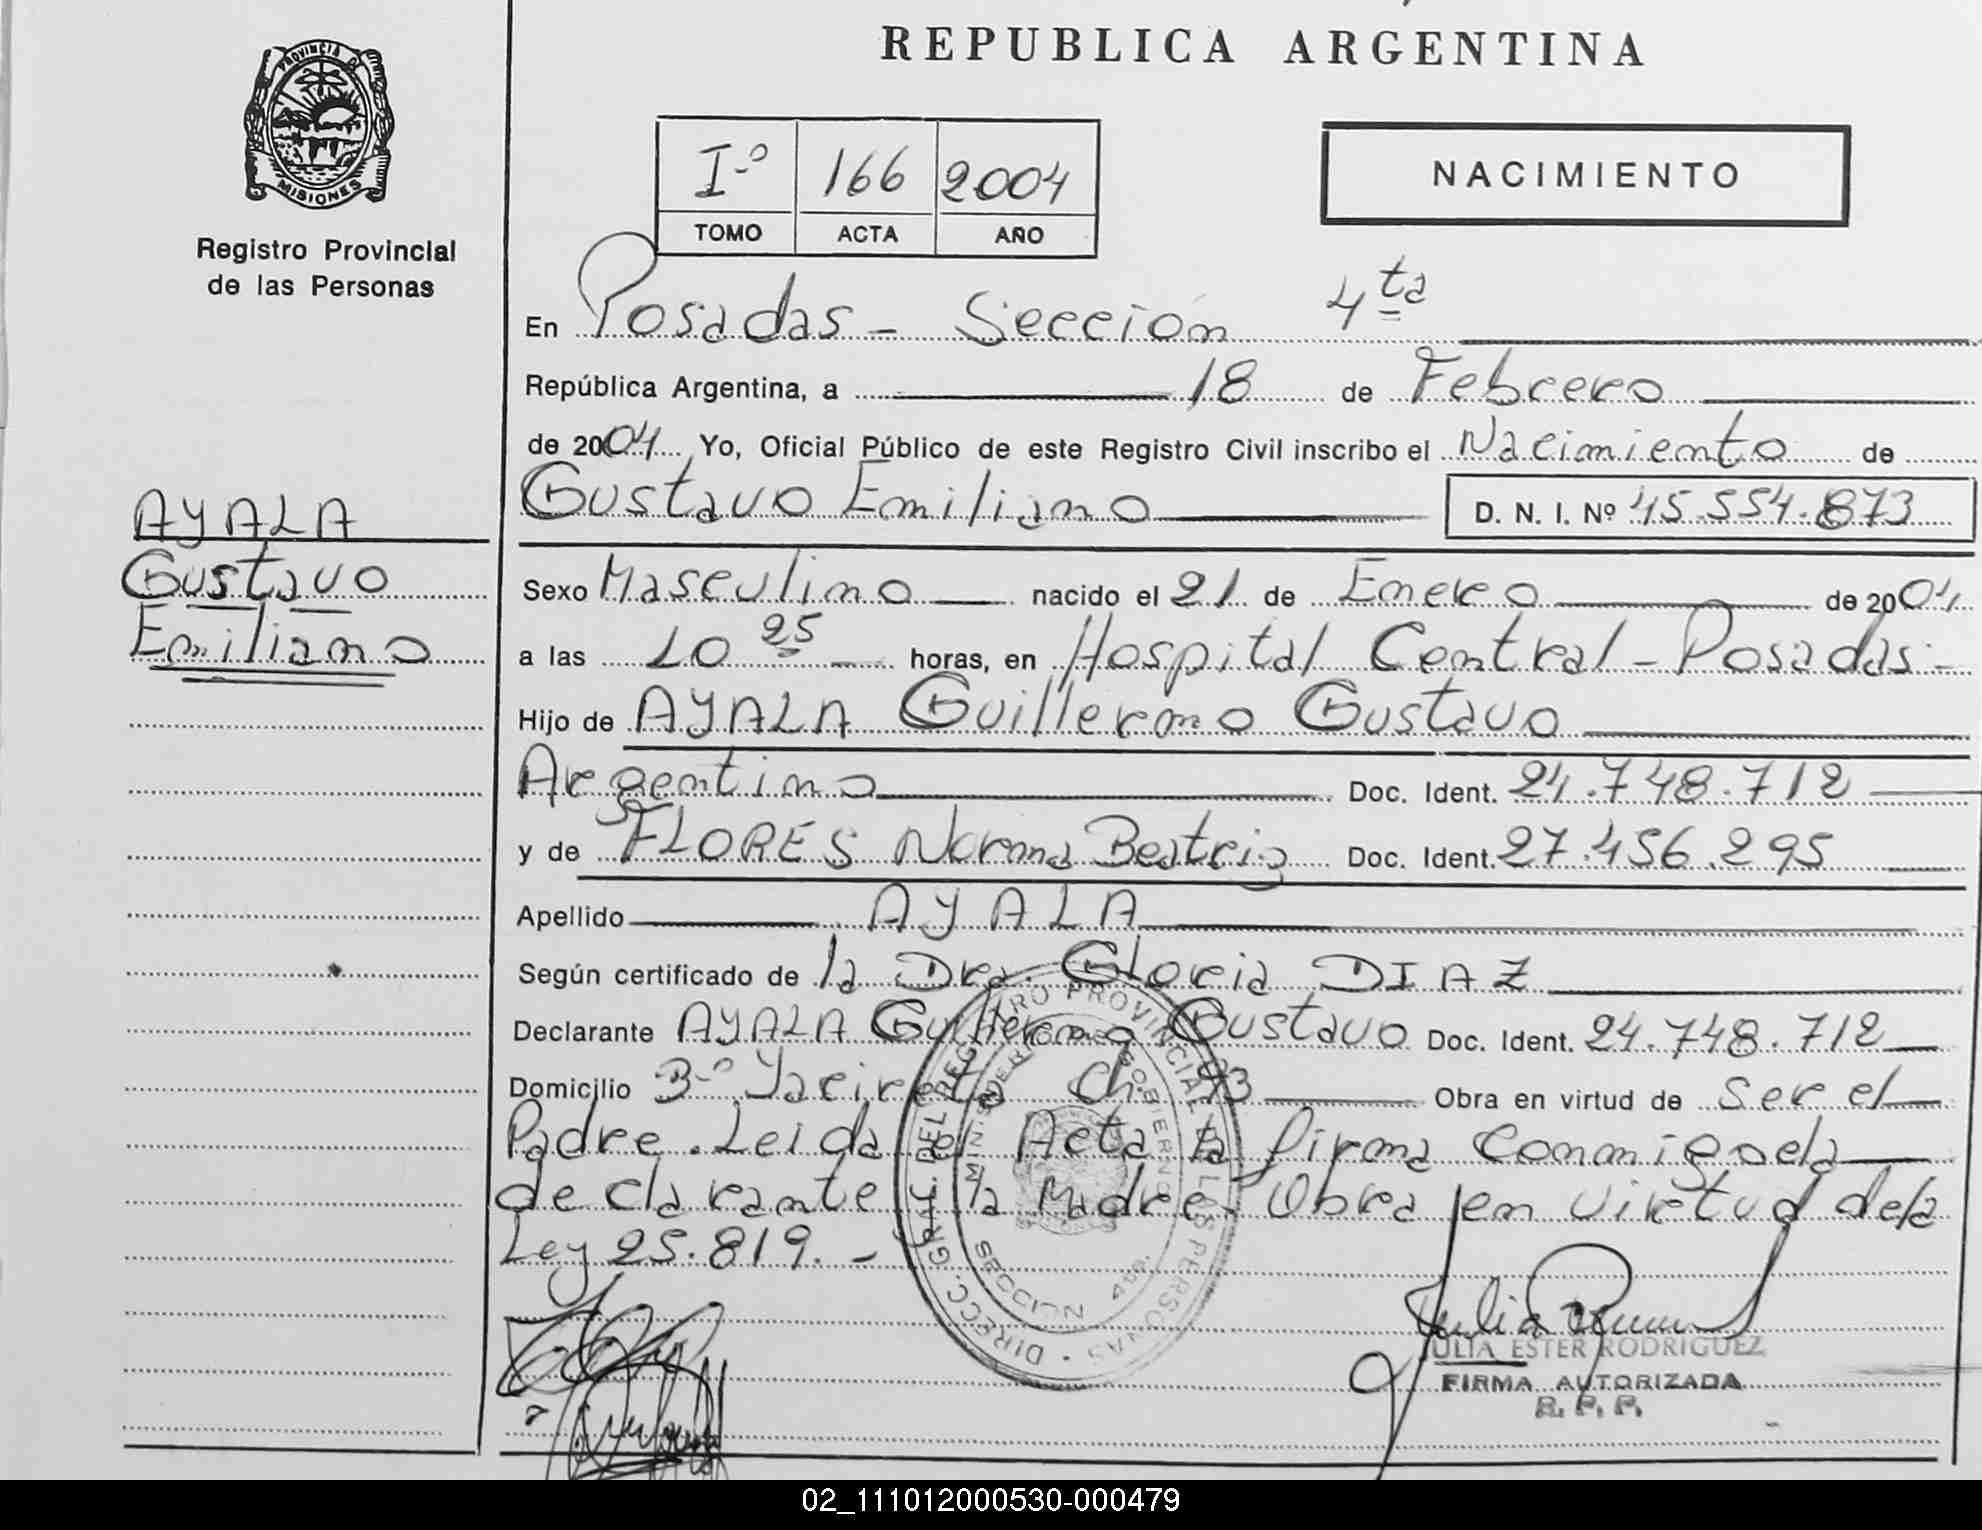 REPUBLICA ARGENTINA
PROVINCIA DE
MISIONES
Registro Provincial
de las Personas
Iº 166 2004
TOMO ACTA AÑO
NACIMIENTO
En Posadas - Sección 4ta
República Argentina, a 18 de Febrero
de 2004 Yo, Oficial Público de este Registro Civil inscribo el Nacimiento de
Gustavo Emiliano D. N. I. Nº 45.554.873
AYALA
Gustavo
Emiliano
Sexo Masculino nacido el 21 de Enero de 2004
a las 10 25 horas, en Hospital Central - Posadas -
Hijo de AYALA Guillermo Gustavo
Argentino Doc. Ident. 24.748.712
y de FLORES Norma Beatriz Doc. Ident. 27.456.295
Apellido AYALA
Según certificado de la Dra. Gloria DIAZ
Declarante AYALA Guillermo Gustavo Doc. Ident. 24.748.712
Domicilio Bº Yacireta Ch. 93 Obra en virtud de ser el
Padre. Leida el Acta la firma Conmigo ela
declarante la Madre. Obra en virtud dela
Ley 25.819. -
DIRECC. GRAL. DEL REGISTRO PROVINCIAL DE LAS PERSONAS
SECCION 4ta.
JULIA ESTER RODRIGUEZ
FIRMA AUTORIZADA
R. P. P.
02_111012000530-000479